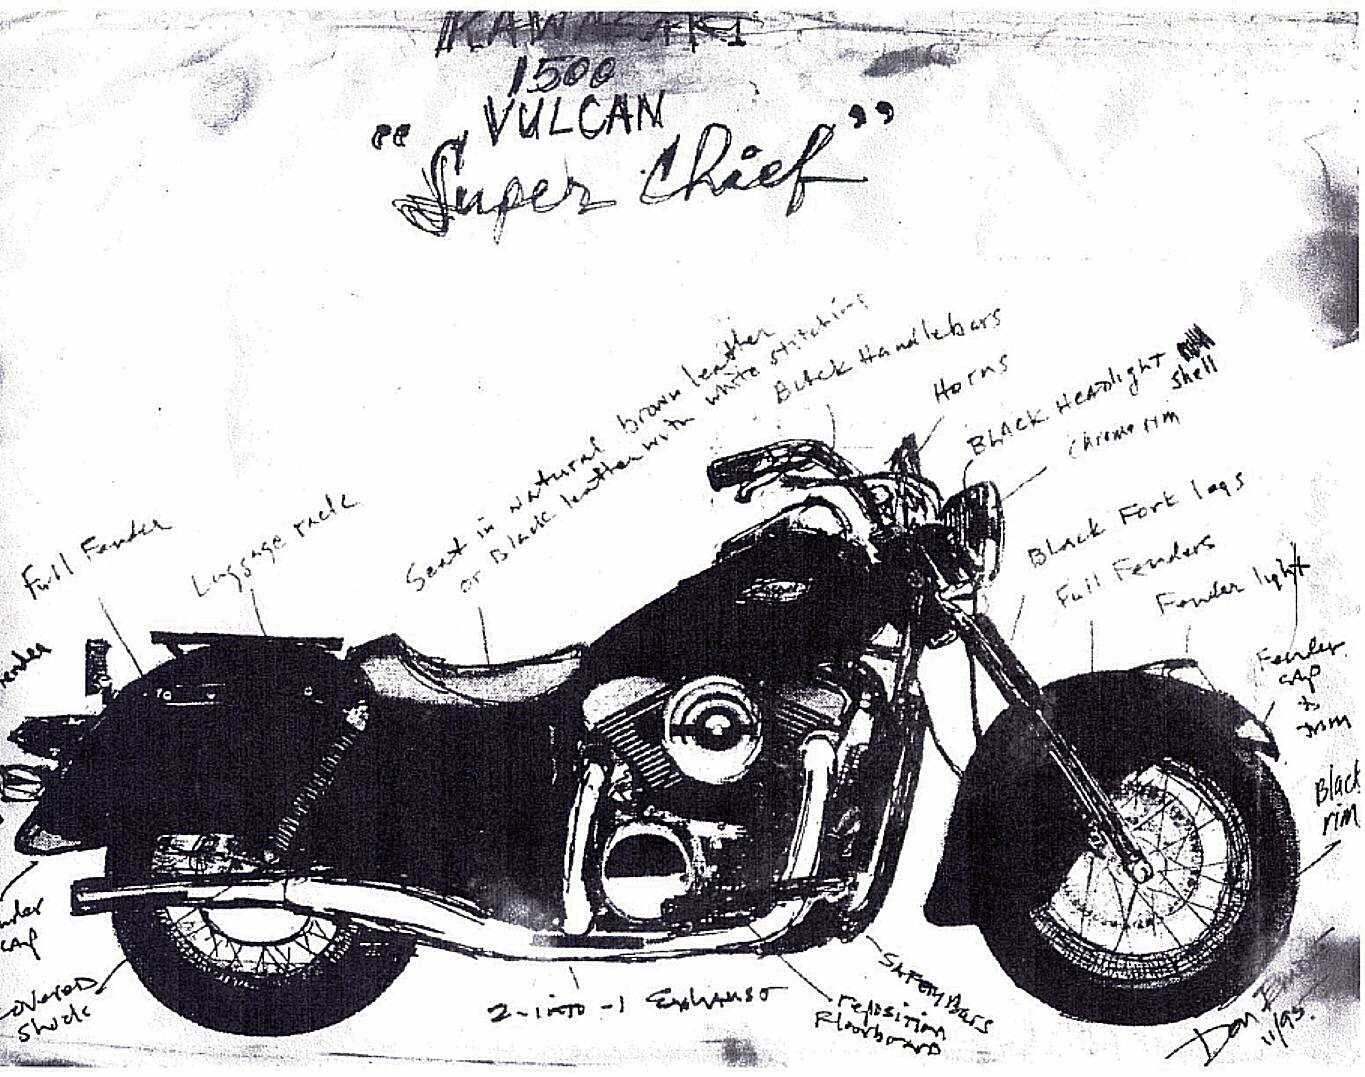 KAWASAKI
1500
VULCAN
"Super Chief"
Seat in natural brown leather
or Black leather with white stitching
Black Handlebars
Horns
BLACK Headlight
Shell
Chrome rim
Black Fork legs
Full Fenders
Fender light
Fender
cap
to
trim
Black
rim
Full Fender
Luggage rack
cap
covered
shock
2-into-1 Exhaust
SAFETY Bars
reposition
Floorboard
Don
11/95.